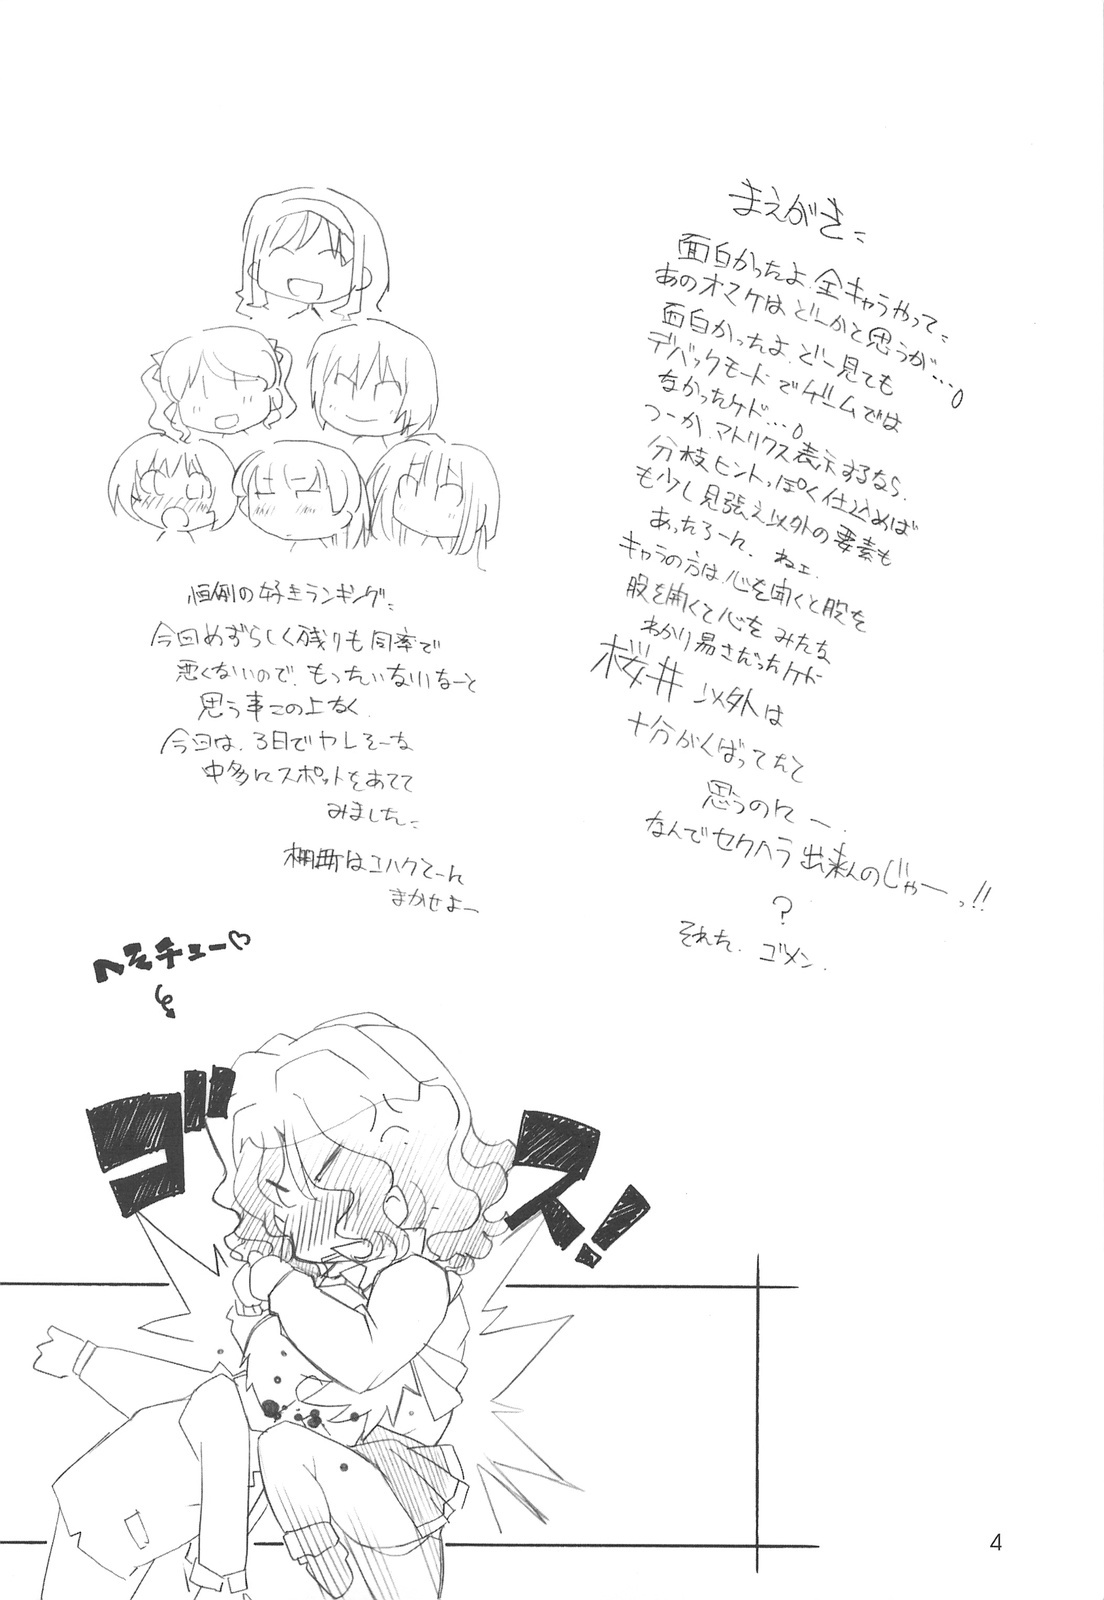 まえがき
面白かったよ、全キャラやって
あのオマケはどーかと思うが…。
面白かったよ、どー見ても
デバックモードでゲームでは
なかったケド…。
つーか、マトリクス表示するなら、
分枝ヒントっぽく仕込めば
も少し見張え以外の要素も
あったろーに、ねェ、
キャラの方は、心を開くと股を
股を開くと心を みたな
わかり易さだったケド
桜井 以外は
十分がんばってたと
思うのにー、
なんでセクハラ出来んのじゃーっ!!
?
それた、ゴメン、
恒例の好きランキング
今回めずらしく残りも同率で
悪くないので、もったいないなーと
思う事この上なく、
今回は、3日でヤレそーな
中多にスポットをあてて
みました
棚町はコハクてーに
まかせよー
ヘそチュー♡
ブス!
4